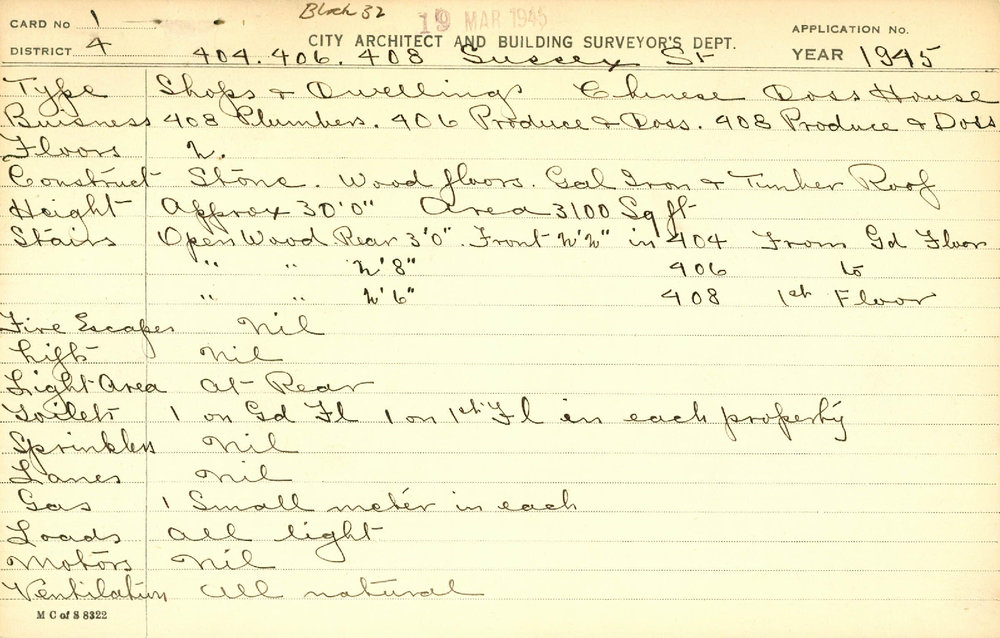 Block 32
19 MAR 1945
CARD No 1
APPLICATION No.
CITY ARCHITECT AND BUILDING SURVEYOR'S DEPT.
DISTRICT 4
404. 406. 408 Sussex St
YEAR 1945
Type Shops & Dwellings Chinese Doss House
Buisness 408 Plumbers. 406 Produce & Doss. 408 Produce & Doss
Floors 2.
Construct Stone. Wood floors. Gal Iron & Timber Roof
Height Approx 30'0" Area 3100 Sq ft
Stairs Open Wood Rear 3'0". Front 2'2" in 404 From Gd Floor
" " 2'8" 406 to
" " 2'6" 408 1st Floor
Fire Escapes Nil
Lifts Nil
Light Area at Rear
Toilets 1 on Gd Fl 1 on 1st Fl in each property
Sprinklers Nil
Lanes Nil
Gas 1 Small meter in each
Loads all light
Motors Nil
Ventilation All natural
M C of S 8322